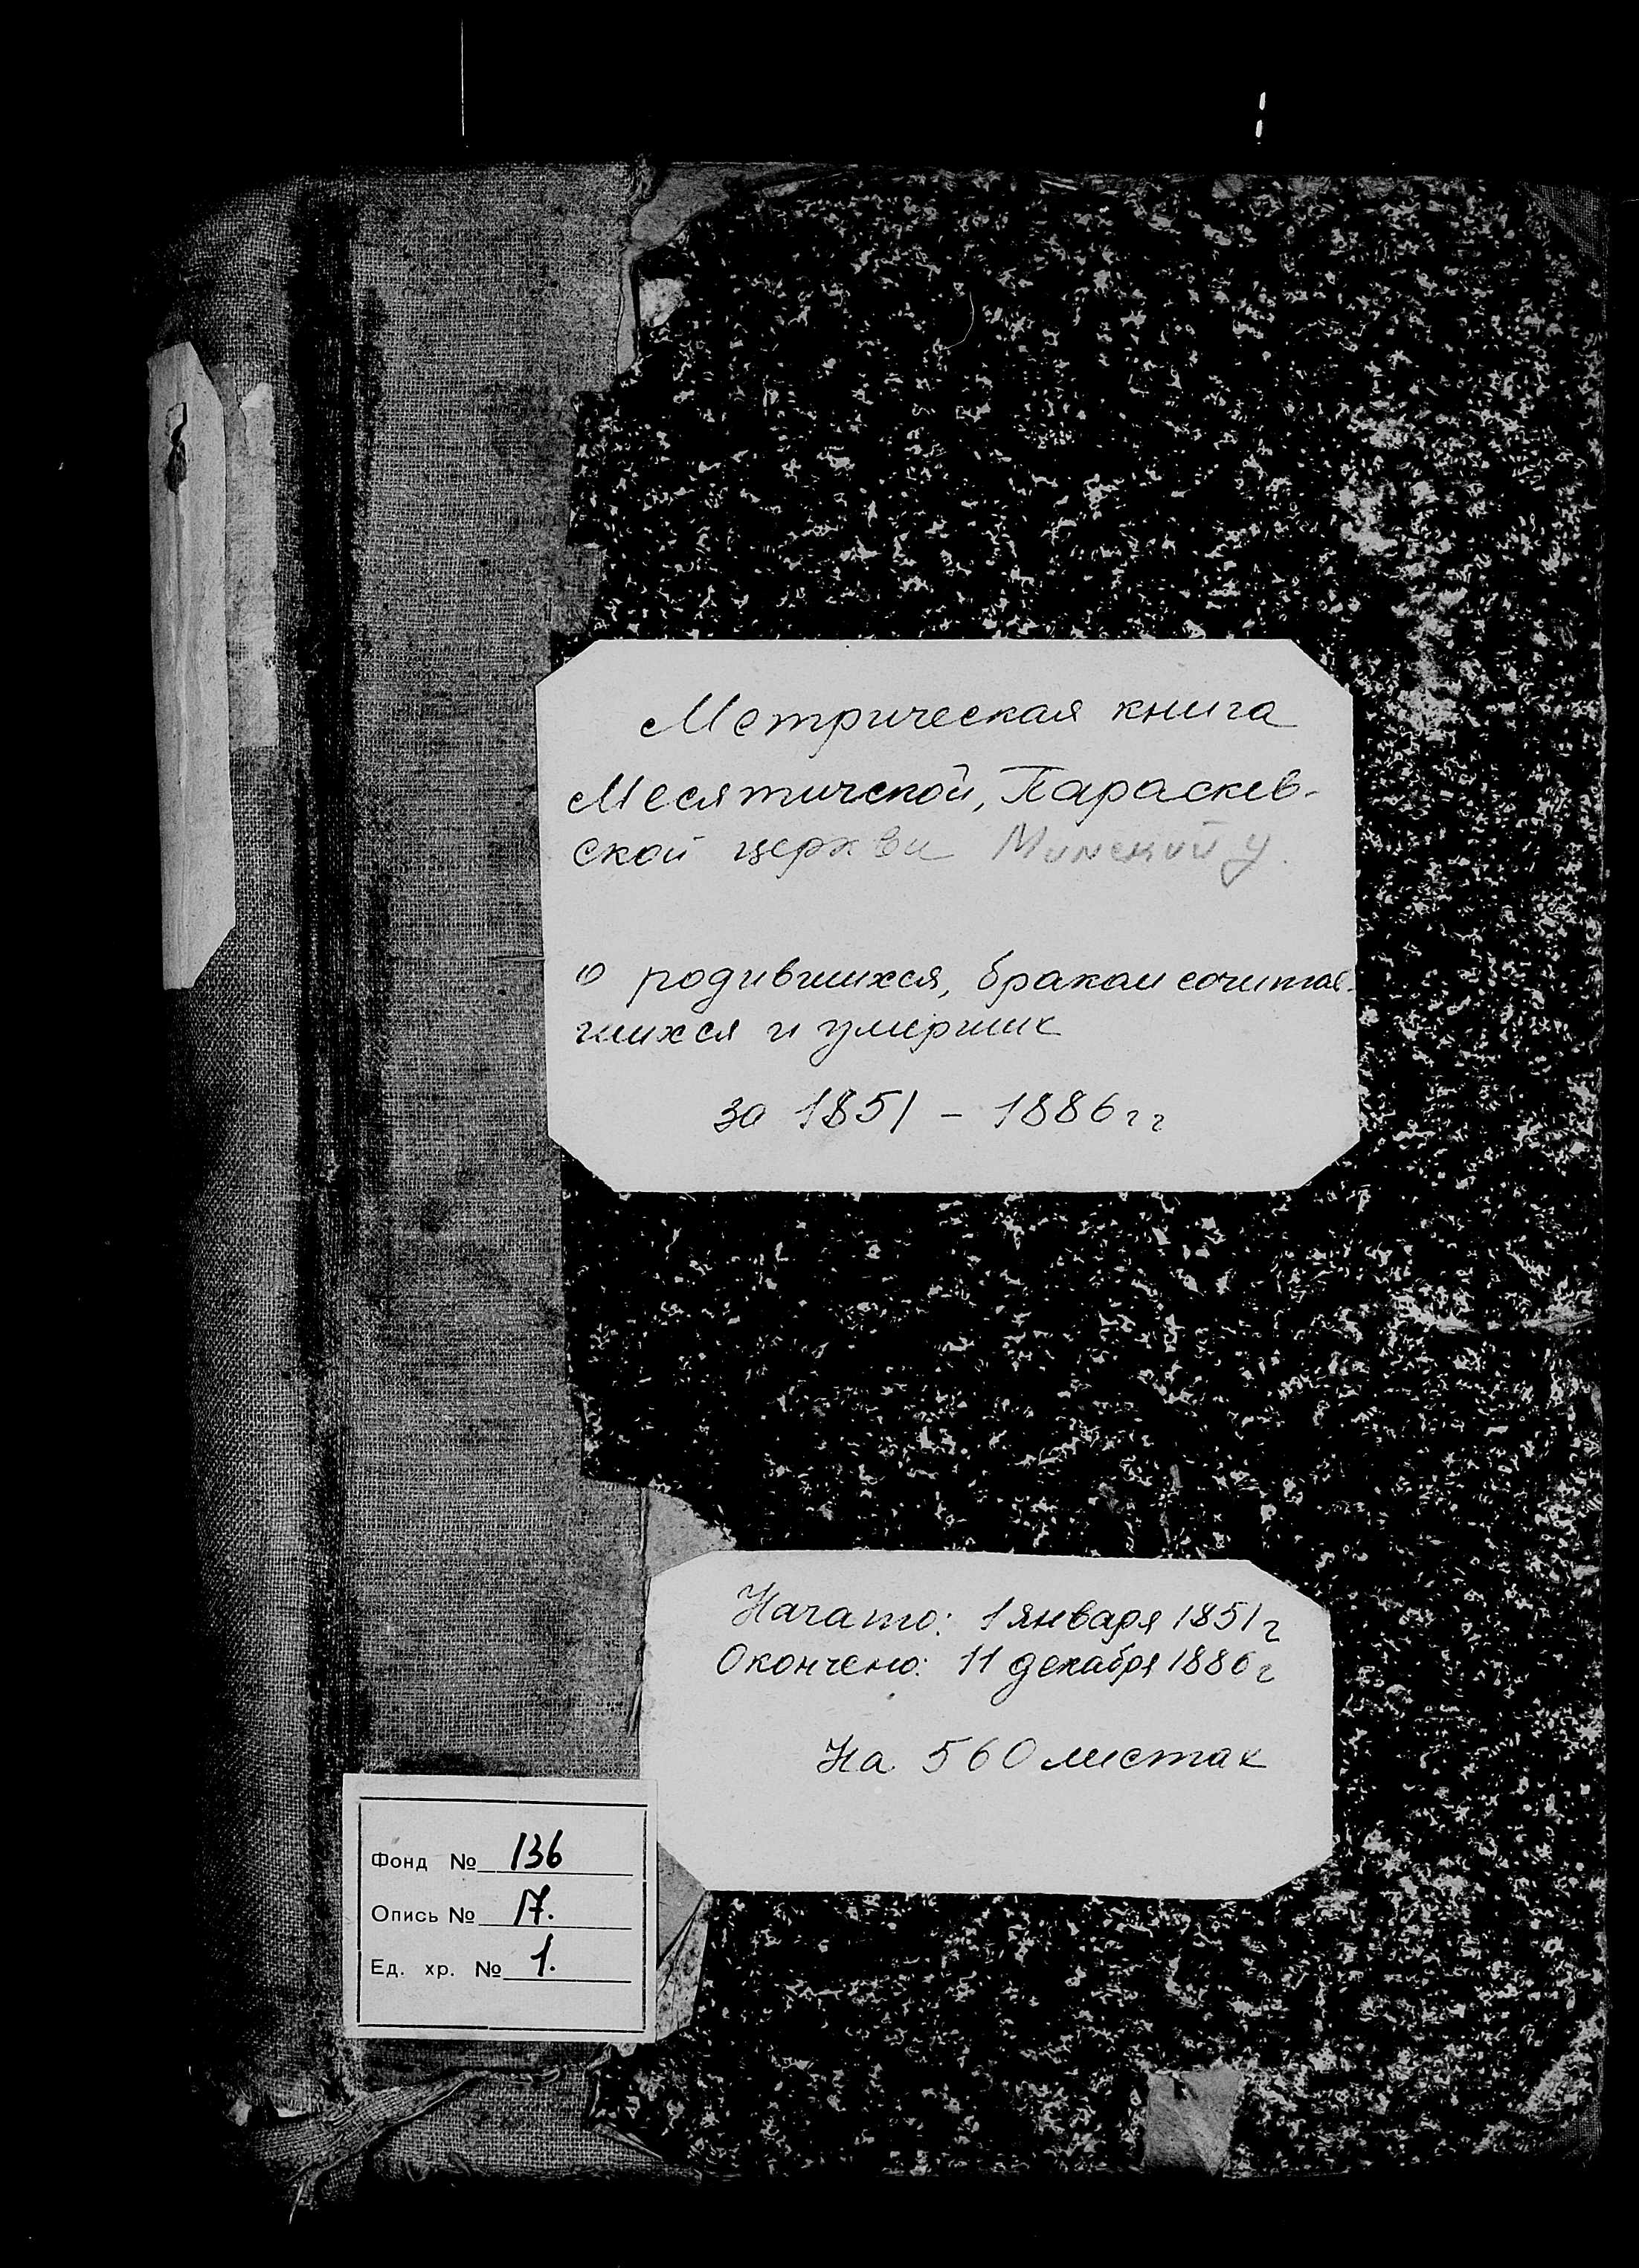 Метрическая книга
Месятичской, Параскев-
ской церкви Минский у.
о родившихся, бракам сочитав-
шихся и умерших
за 1851 – 1886 гг
Начато: 1 января 1851 г
Окончено: 11 декабря 1886 г
На 560 листах
Фонд № 136
Опись № 17.
Ед. хр. № 1.